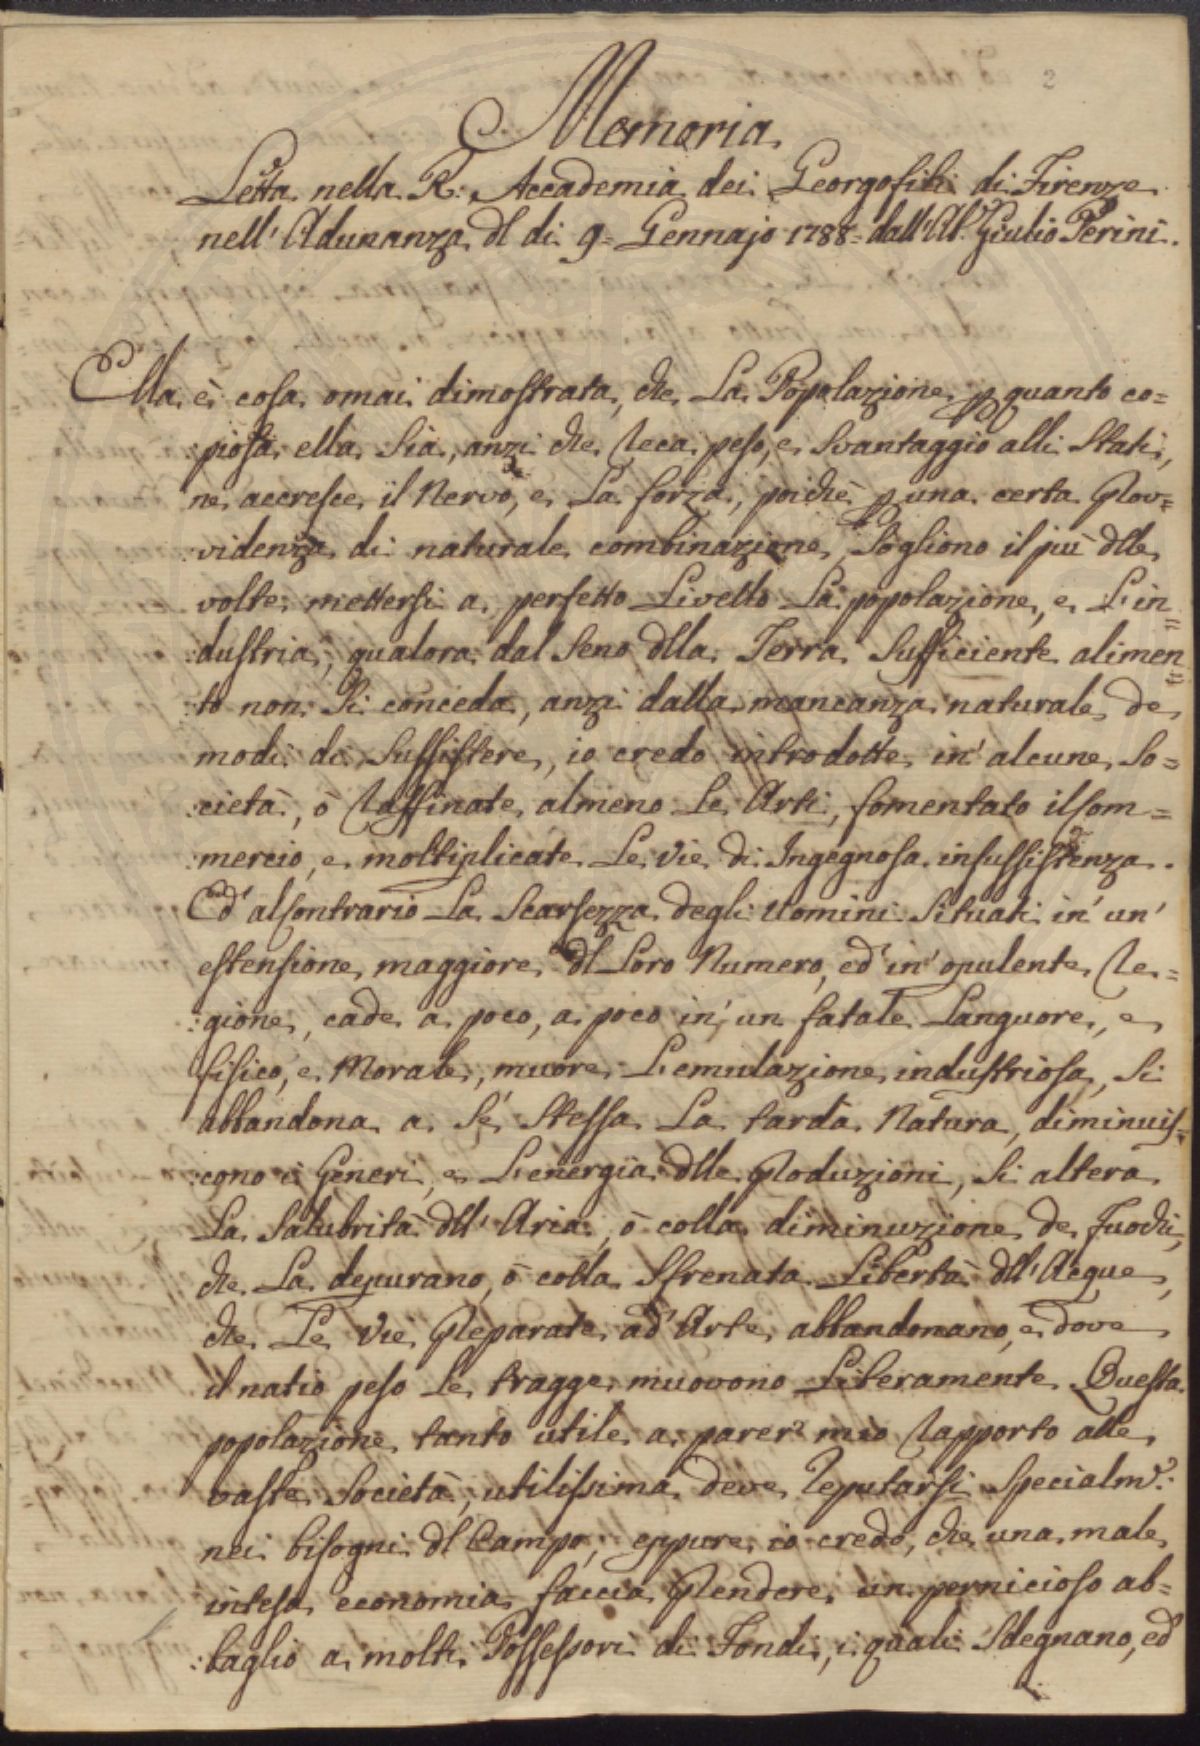 2
Memoria
Letta nella R. Accademia dei Georgofili di Firenze
nell'Adunanza dl di 9= Gennajo 1788= dall'Ab.e Giulio Perini.
Ella è cosa omai dimostrata, che La Popolazione p quanto co=
:piosa ella Sia, anzi che Reca peso, e Svantaggio alli Stati,
ne accresce il Nervo, e La forza, poichè p una certa Prov=
:videnza di naturale combinazione Sogliono il più dlle
volte mettersi a perfetto Livello La popolazione, e L'in=
:dustria, qualora dal Seno dlla Terra Sufficiente alimen=
:to non Si conceda, anzi dalla mancanza naturale de
modi di Sussistere, io credo introdotte in' alcune So=
:cietà, ò Raffinate almeno Le Arti, fomentato il Com=
:mercio, e moltiplicate Le vie di Ingegnosa insussistenza.
Ed' al Contrario La Scarsezza degli Uomini Situati in' un'
estensione maggiore dl Loro Numero, ed' in' opulente Re=
:gione, cade a poco, a poco in' un fatale Languore, e
fisico, e Morale, muore L'emulazione industriosa, Si
abbandona a Sé Stessa La tarda Natura, diminuis=
:cono i Generi, e L'energia dlle Produzioni, Si altera
La Salubrità dll' Aria, ò colla diminuzione de Fuochi,
che La depurano, ò colla Sfrenata Libertà dll' Acque,
che Le vie Preparate ad' Arte abbandonano, e dove
il natio peso Le tragge muovono Liberamente. Questa
popolazione tanto utile a parer mio Rapporto alle
vaste Società, utilissima deve Reputarsi Specialm.e
nei bisogni dl Campo; eppure io credo, che una male
intesa economia faccia Prendere un pernicioso ab=
:baglio a molti Possessori di Fondi, i quali Sdegnano, ed